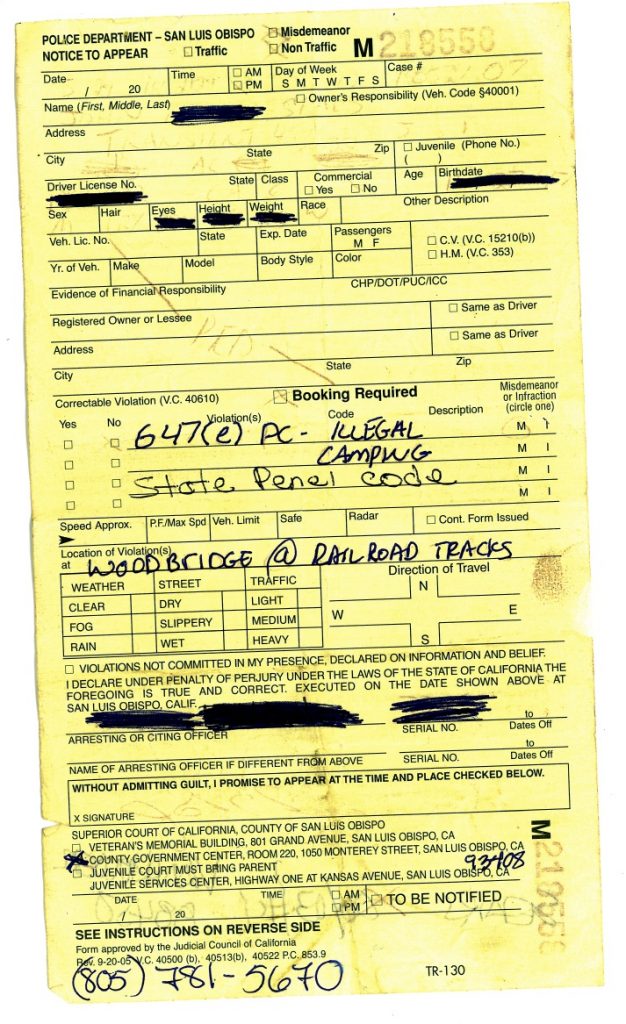 POLICE DEPARTMENT – SAN LUIS OBISPO ☐ Misdemeanor
NOTICE TO APPEAR ☐ Traffic ☐ Non Traffic M 218558
Date Time ☐ AM Day of Week Case #
/ 20 ☐ PM S M T W T F S
Name (First, Middle, Last) ☐ Owner's Responsibility (Veh. Code §40001)
Address
City State Zip ☐ Juvenile (Phone No.)
( )
Driver License No. State Class Commercial Age Birthdate
☐ Yes ☐ No
Sex Hair Eyes Height Weight Race Other Description
Veh. Lic. No. State Exp. Date Passengers ☐ C.V. (V.C. 15210(b))
M F ☐ H.M. (V.C. 353)
Yr. of Veh. Make Model Body Style Color
Evidence of Financial Responsibility CHP/DOT/PUC/ICC
Registered Owner or Lessee ☐ Same as Driver
Address ☐ Same as Driver
City State Zip
Correctable Violation (V.C. 40610) ☒ Booking Required Misdemeanor
or Infraction
(circle one)
Yes No Violation(s) Code Description
☐ ☐ 647(e) PC- ILLEGAL M I
☐ ☐ CAMPING M I
☐ ☐ State Penel code M I
☐ ☐ M I
Speed Approx. P.F./Max Spd Veh. Limit Safe Radar ☐ Cont. Form Issued
Location of Violation(s)
at WOODBRIDGE @ RAILROAD TRACKS
WEATHER STREET TRAFFIC Direction of Travel
CLEAR DRY LIGHT N
FOG SLIPPERY MEDIUM W E
RAIN WET HEAVY S
☐ VIOLATIONS NOT COMMITTED IN MY PRESENCE, DECLARED ON INFORMATION AND BELIEF.
I DECLARE UNDER PENALTY OF PERJURY UNDER THE LAWS OF THE STATE OF CALIFORNIA THE
FOREGOING IS TRUE AND CORRECT. EXECUTED ON THE DATE SHOWN ABOVE AT
SAN LUIS OBISPO, CALIF.
to
ARRESTING OR CITING OFFICER SERIAL NO. Dates Off
to
NAME OF ARRESTING OFFICER IF DIFFERENT FROM ABOVE SERIAL NO. Dates Off
WITHOUT ADMITTING GUILT, I PROMISE TO APPEAR AT THE TIME AND PLACE CHECKED BELOW.
X SIGNATURE
SUPERIOR COURT OF CALIFORNIA, COUNTY OF SAN LUIS OBISPO
☐ VETERAN'S MEMORIAL BUILDING, 801 GRAND AVENUE, SAN LUIS OBISPO, CA
COUNTY GOVERNMENT CENTER, ROOM 220, 1050 MONTEREY STREET, SAN LUIS OBISPO, CA
☐ JUVENILE COURT MUST BRING PARENT 93408
JUVENILE SERVICES CENTER, HIGHWAY ONE AT KANSAS AVENUE, SAN LUIS OBISPO, CA
DATE TIME ☐ AM ☐ TO BE NOTIFIED
/ 20 ☐ PM
SEE INSTRUCTIONS ON REVERSE SIDE
Form approved by the Judicial Council of California
Rev. 9-20-05 V.C. 40500 (b), 40513(b), 40522 P.C. 853.9
(805) 781-5670 TR-130
M 218558